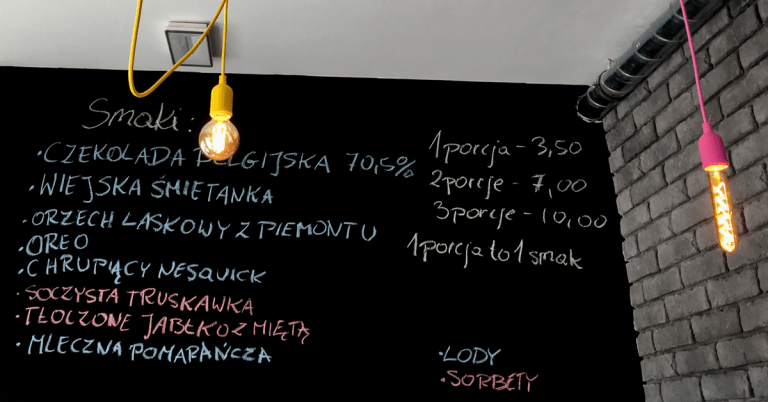 Smaki:
• CZEKOLADA BELGIJSKA 70,5%
• WIEJSKA ŚMIETANKA
• ORZECH LASKOWY Z PIEMONTU
• OREO
• CHRUPIĄCY NESQUICK
• SOCZYSTA TRUSKAWKA
• TŁOCZONE JABŁKO Z MIĘTĄ
• MLECZNA POMARAŃCZA
1 porcja - 3,50
2 porcje - 7,00
3 porcje - 10,00
1 porcja to 1 smak
• LODY
• SORBETY